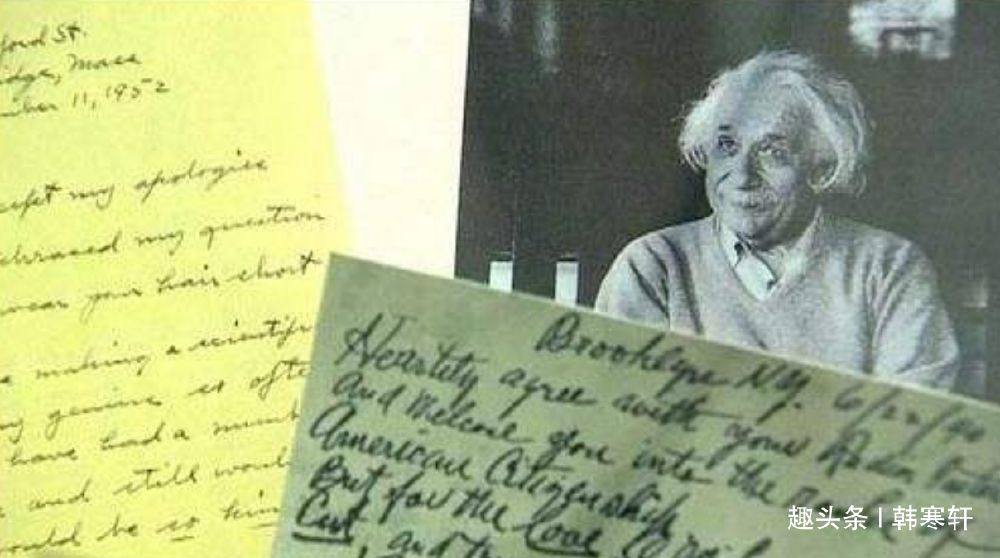 ford St.
idge, Mass
mber 11, 1952
cept my apologies
phrased my question
wear your hair short
making a scientific
genius so ofte
have had a
and still would
ould be so kin
Brooklyn N.Y. 6/22/40
Heartily agree with your Radio
And Welcome you into the ranks of
American Citizenship
But for the love
Cut, and
趣头条 | 韩寒轩